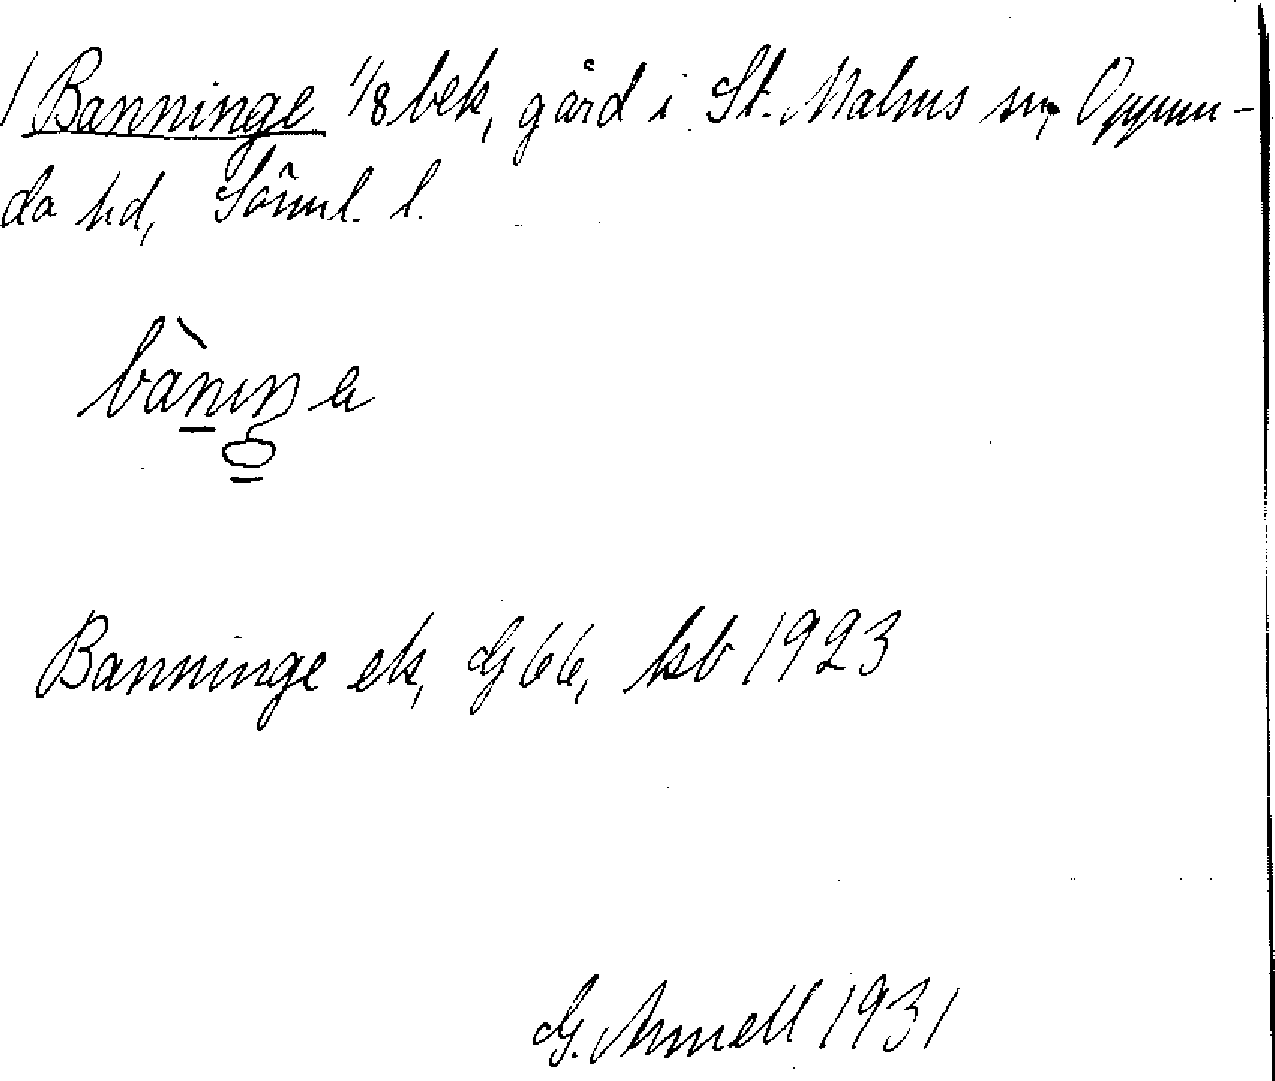 / Banninge 1/8 bek, gård i St. Malms sn, Oppun-
da hd, Söml. l.
bànıŋa
Banninge ek, G 66, kb 1923
G. Arnell 1931